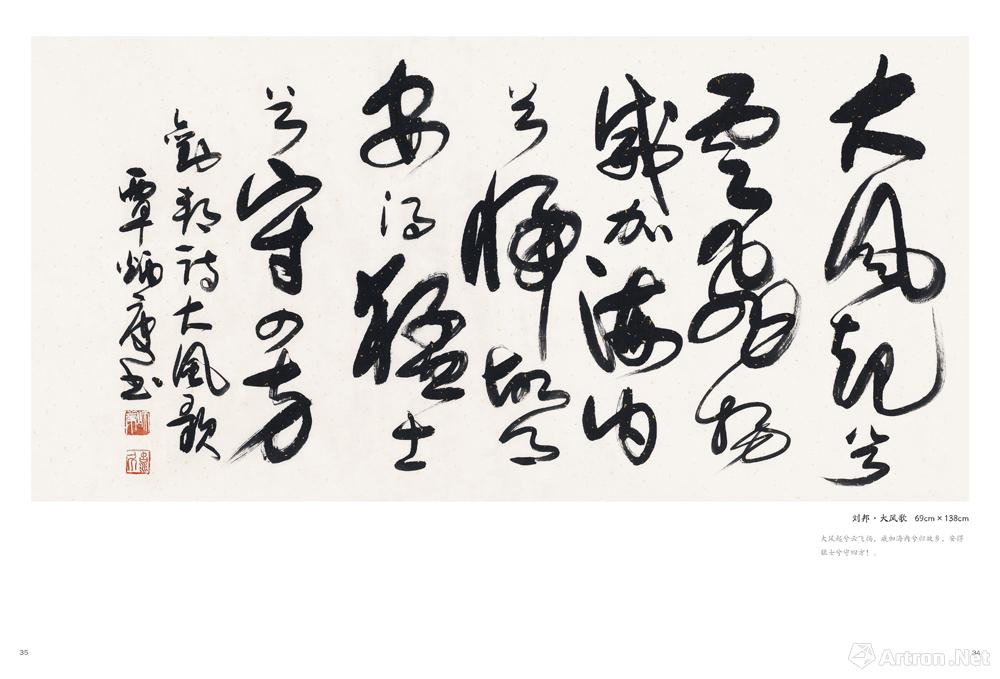 大風起兮
雲飛揚
威加海内
兮歸故鄉
安得猛士
兮守四方
劉邦詩大風歌
覃炳书
刘邦・大风歌 69cm × 138cm
大风起兮云飞扬，威加海内兮归故乡，安得
猛士兮守四方！。
35
34
Artron.Net